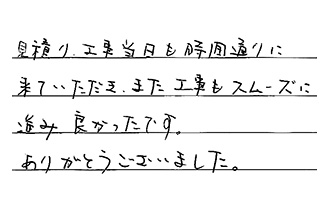 見積り、工事当日も時間通りに
来ていただき、また工事もスムーズに
進み良かったです。
ありがとうございました。